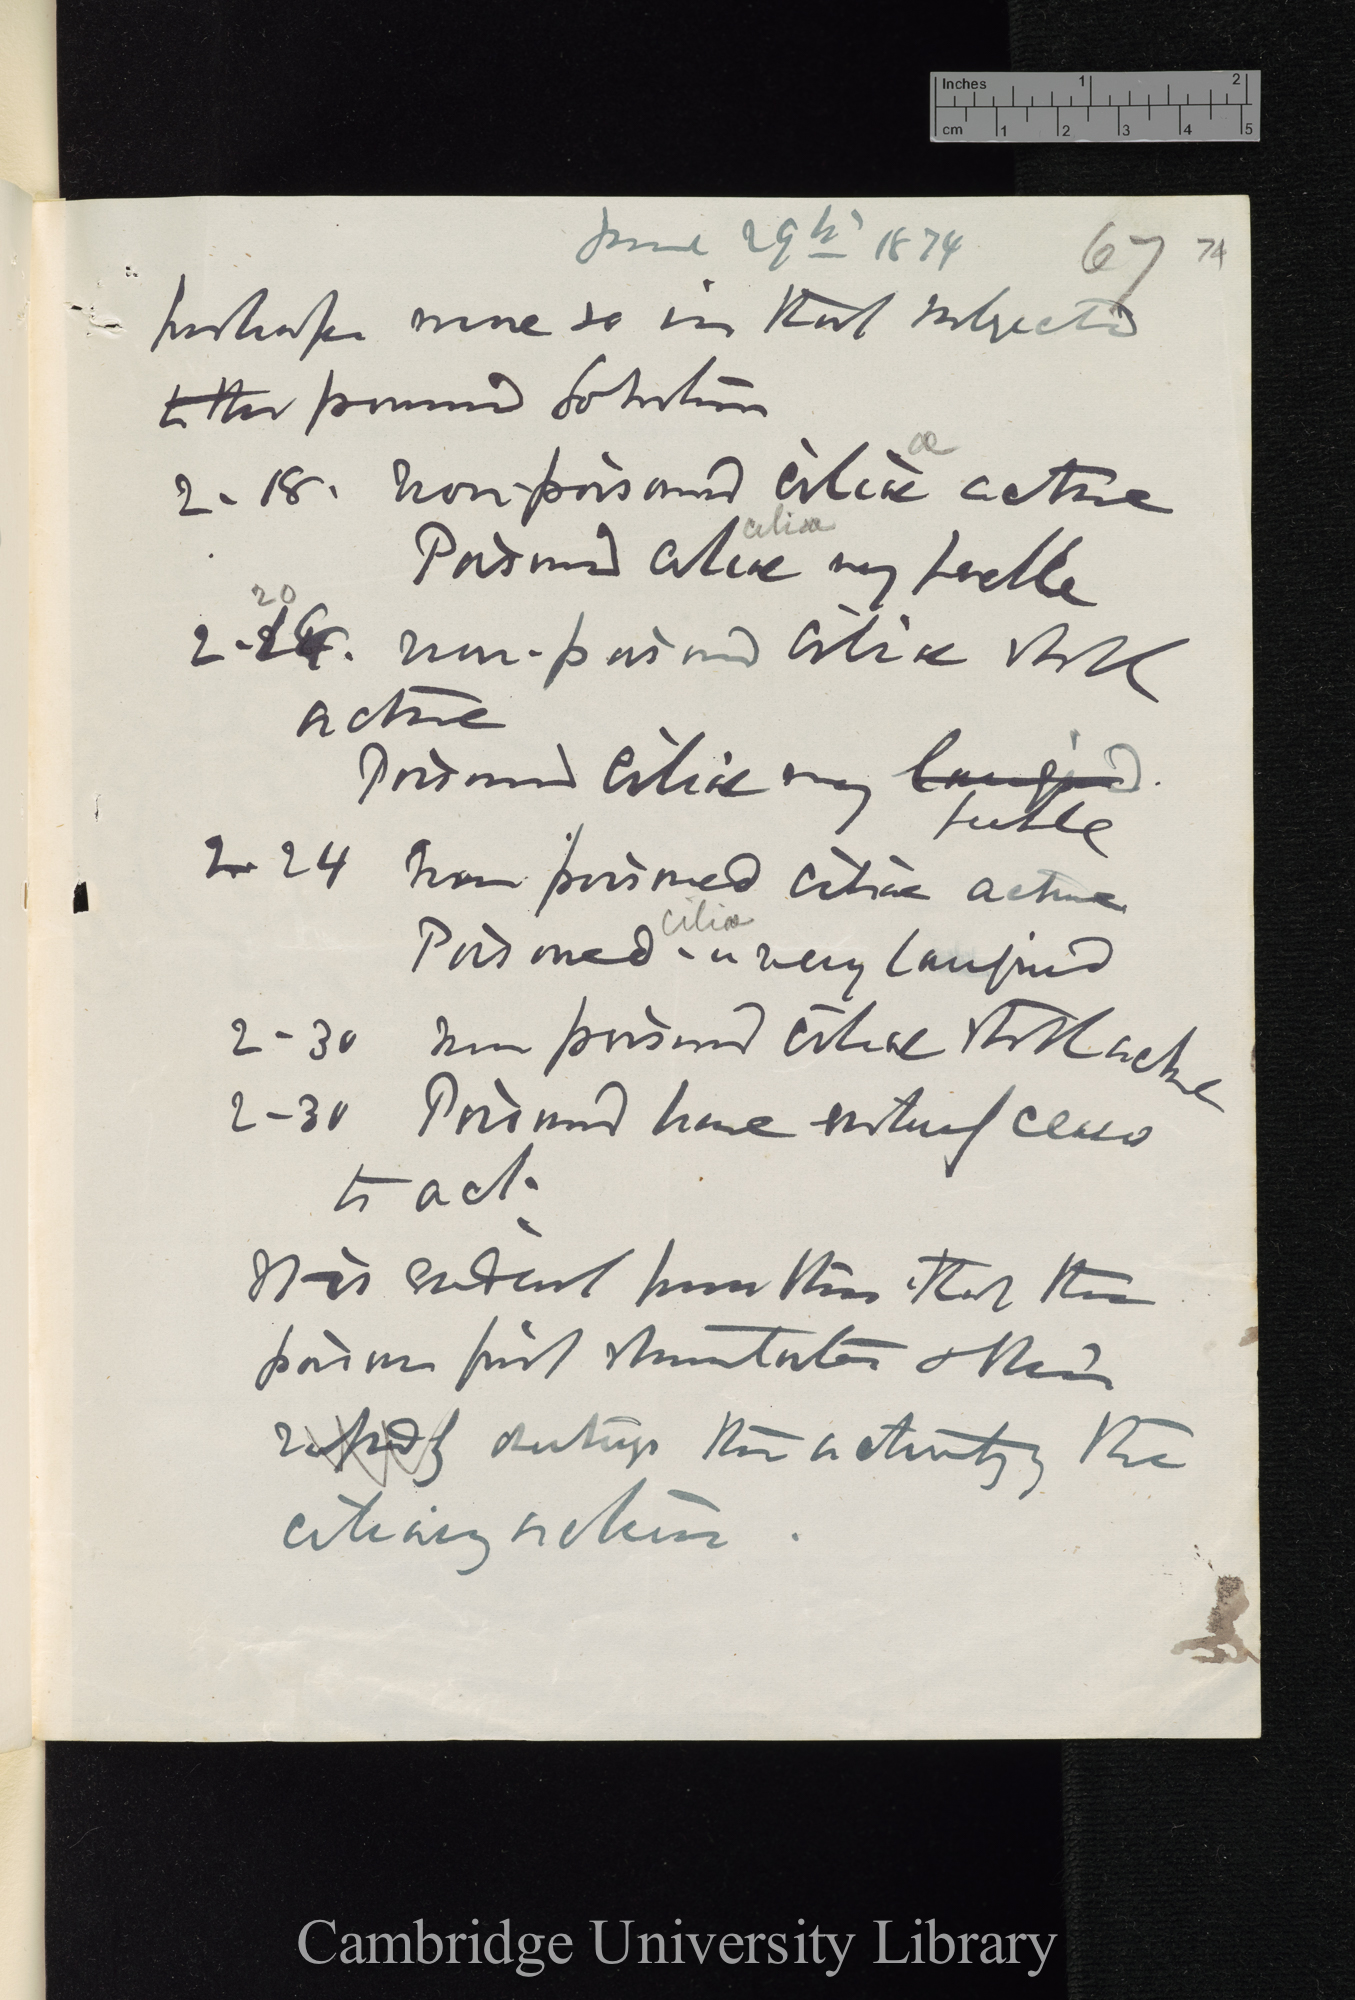 Inches 1 2
cm 1 2 3 4 5
June 29th 1874 67 74
perhaps more so in that subjected
to the poisoned solution
æ
2-18. non-poisoned ciliæ active
ciliæ
Poisoned ciliæ very feeble
20
2- . non-poisoned ciliæ still
active
Poisoned ciliæ very languid.
feeble
2-24 non poisoned ciliæ active
ciliæ
Poisoned - " very languid
2-30 non poisoned ciliæ still active
2-30 Poisoned have entirely ceased
to act.
It is evident from this that the
poison first stimulates & then
rapidly destroys the activity of the
ciliary action.
Cambridge University Library